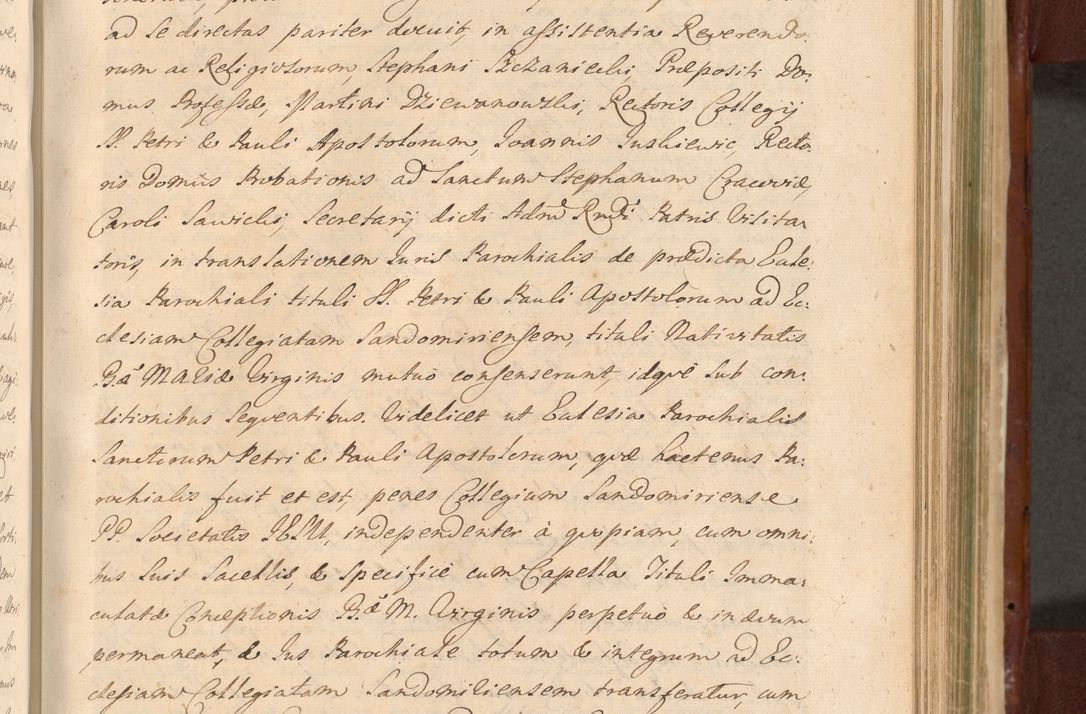 ad se directas pariter devenit, in assistentia Reverendo
rum ac Religiosorum Stephani Szczaniecki, Præpositi Do:
mus Professæ, Martini Dziewanowski, Rectoris Collegij
SS. Petri & Pauli Apostolorum, Joannis Juskiewic, Recto
ris Domus Probationis ad Sanctum Stephanum Cracoviæ,
Caroli Sawicki, Secretarij dicti Adm̃ Rndi Patris Visita
toris, in translationem Juris Parochialis de prædicta Eccle:
sia Parochiali tituli SS. Petri & Pauli Apostolorum ad Ec:
clesiam Collegiatam Sandomiriensem, tituli Nativitatis
B.æ MARIÆ Virginis mutuò consenserunt, idqve sub con:
ditionibus seqventibus. Videlicet ut Ecclesia Parochialis
Sanctorum Petri & Pauli Apostolorum, qvæ hactenus Pa:
rochialis fuit et est, penes Collegium Sandomiriense
PP. Societatis IESU, independenter à qvopiam, cum omni
bus suis Sacellis, & specificè cum Capella Tituli Imma:
culatæ Conceptionis B.æ M. Virginis perpetuò & in ævum
permaneat, & Jus Parochiale totum & integrum ad Ec:
clesiam Collegiatam Sandomiriensem transferatur, cum